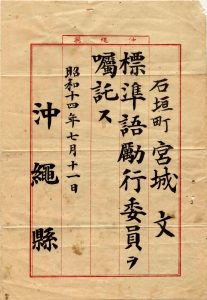 石垣町 宮城 文
標準語励行委員ヲ
嘱託ス
昭和十四年七月十一日
沖縄縣